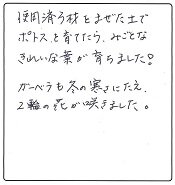 使用済み材をまぜた土で
ポトスを育てたら、みごとな
きれいな葉が育ちました!
ガーベラも冬の寒さにたえ、
2輪の花が咲きました。